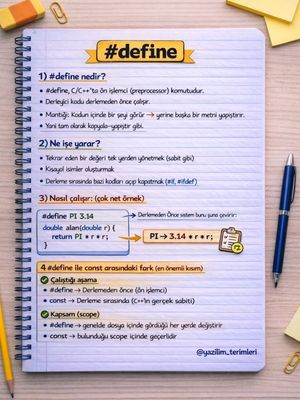 #define
1) #define nedir?
• #define, C/C++'ta ön işlemci (preprocessor) komutudur.
• Derleyici kodu derlemeden önce çalışır.
• Mantığı: Kodun içinde bir şeyi görür → yerine başka bir metni yapıştırır.
• Yani tam olarak kopyala-yapıştır gibi.
2) Ne işe yarar?
• Tekrar eden bir değeri tek yerden yönetmek (sabit gibi)
• Kısayol isimler oluşturmak
• Derleme sırasında bazı kodları açıp kapatmak (#if, #ifdef)
3) Nasıl çalışır: (çok net örnek)
#define PI 3.14
→ Derlemeden Önce sistem bunu şuna çevirir:
double alan(double r) {
return PI * r * r;
}
PI → 3.14 * r * r;
4 #define ile const arasındaki fark (en önemli kısım)
Çalıştığı aşama
• #define → Derlemeden önce (ön işlemci)
• const → Derleme sırasında (C++'ın gerçek sabiti)
Kapsam (scope)
• #define → genelde dosya içinde gördüğü her yerde değiştirir
• const → bulunduğu scope içinde geçerlidir
@yazilim_terimleri